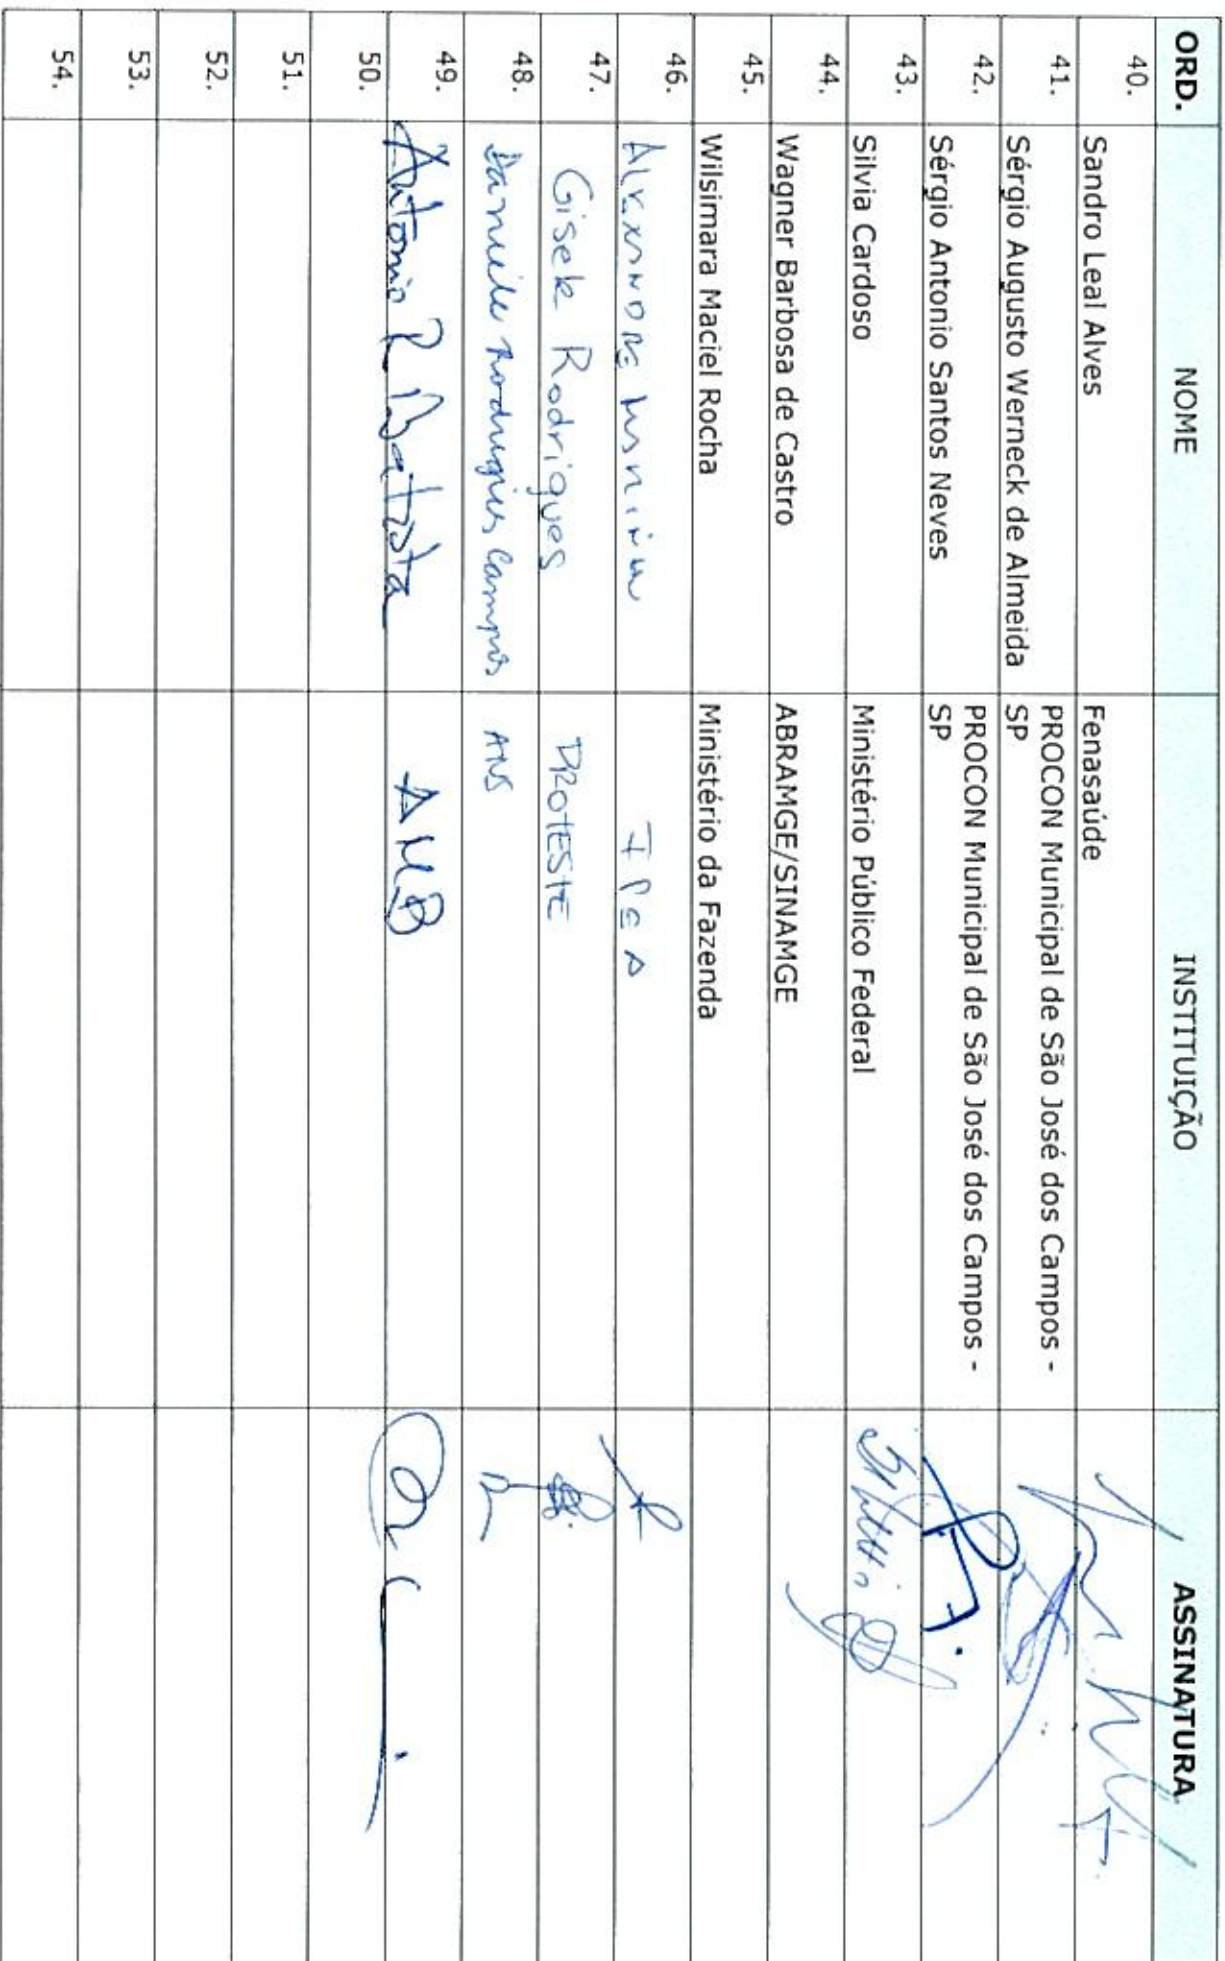 ORD. NOME INSTITUIÇÃO ASSINATURA
40. Sandro Leal Alves Fenasaúde
41. Sérgio Augusto Werneck de Almeida PROCON Municipal de São José dos Campos -
SP
42. Sérgio Antonio Santos Neves PROCON Municipal de São José dos Campos -
SP
43. Silvia Cardoso Ministério Público Federal
44. Wagner Barbosa de Castro ABRAMGE/SINAMGE
45. Wilsimara Maciel Rocha Ministério da Fazenda
46. ALEXANDRE IPEA
47. Gisele Rodrigues PROTESTE
48. Daniele Rodrigues Campos ANS
49. Antonio R Batista AMB
50.
51.
52.
53.
54.